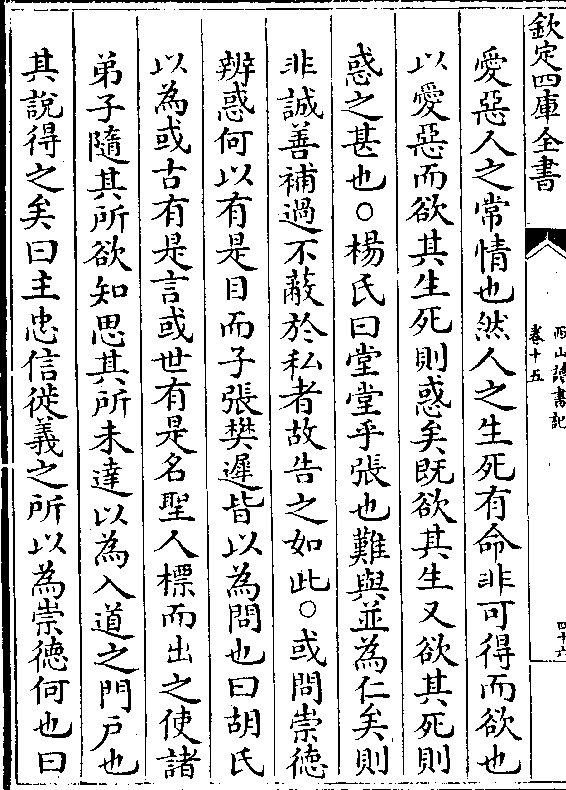 欽定四庫全書
西山讀書記
卷十五
四十六
愛惡人之常情也然人之生死有命非可得而欲也
以愛惡而欲其生死則惑矣既欲其生又欲其死則
惑之甚也○楊氏曰堂堂乎張也難與並為仁矣則
非誠善補過不蔽於私者故告之如此○或問崇德
辨惑何以有是目而子張樊遲皆以為問也曰胡氏
以為或古有是言或世有是名聖人標而出之使諸
弟子隨其所欲知思其所未達以為入道之門戶也
其說得之矣曰主忠信徙義之所以為崇德何也曰